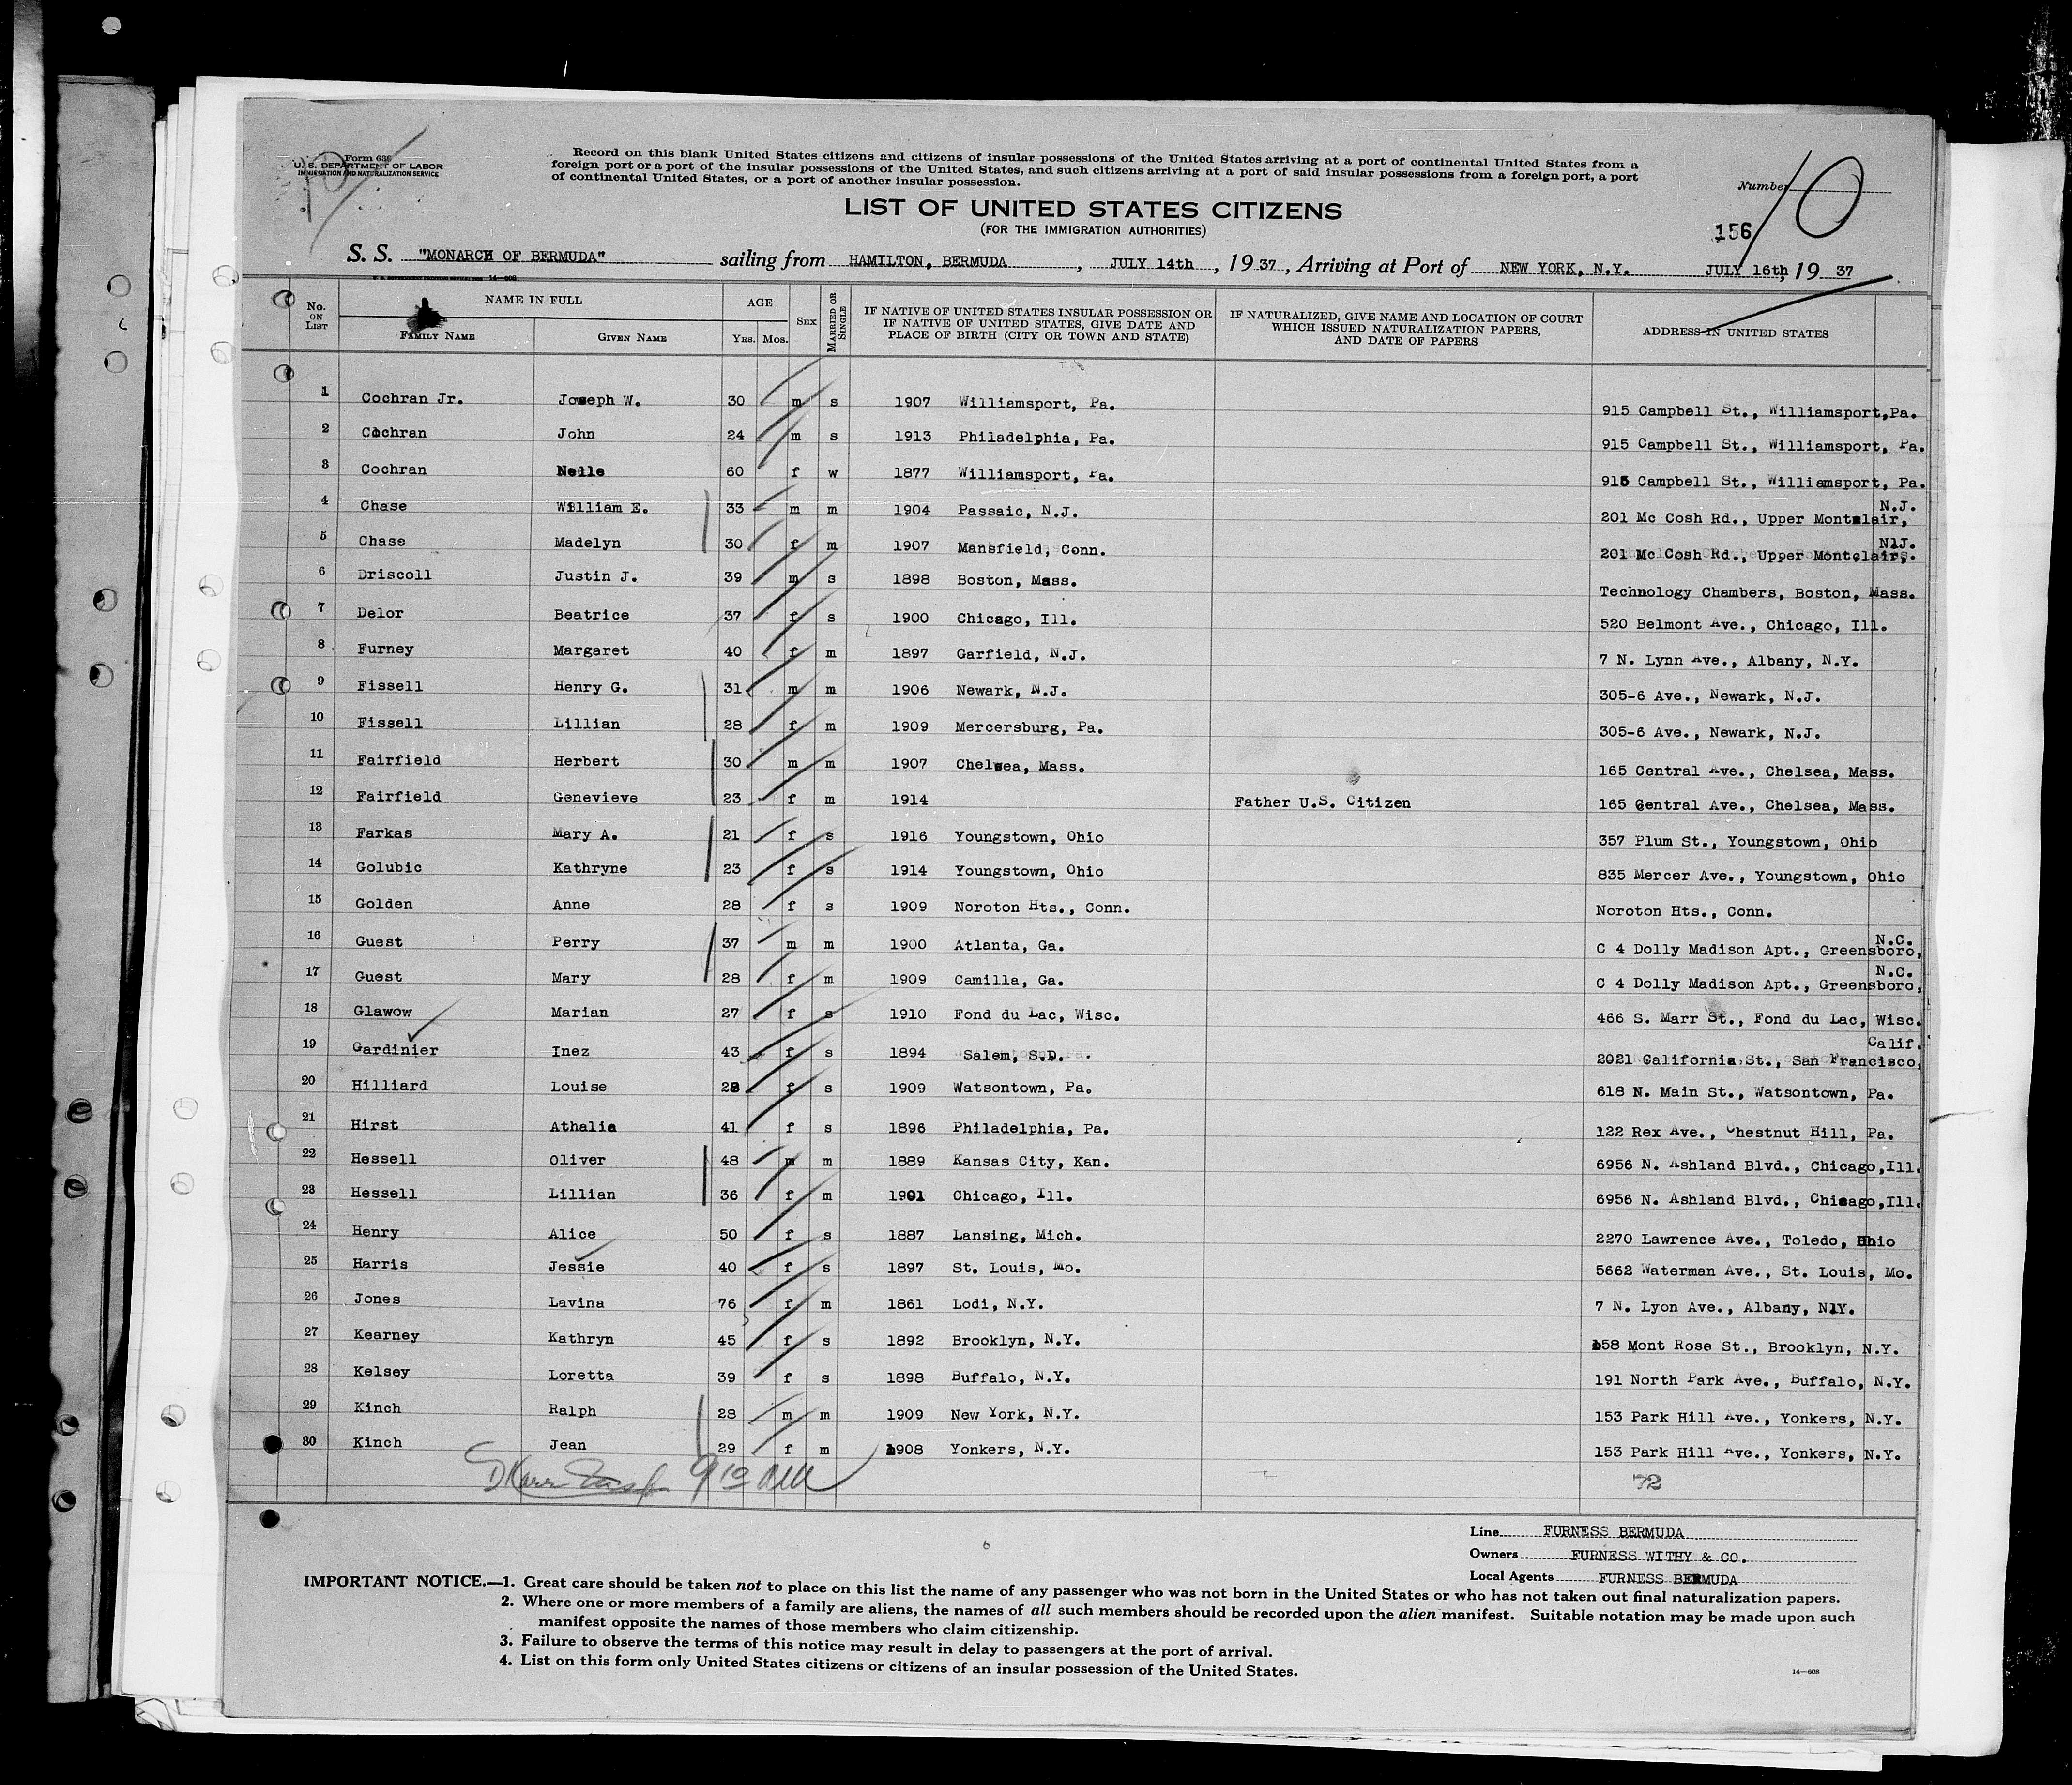 Form 636
U. S. DEPARTMENT OF LABOR
IMMIGRATION AND NATURALIZATION SERVICE
Record on this blank United States citizens and citizens of insular possessions of the United States arriving at a port of continental United States from a
foreign port or a port of the insular possessions of the United States, and such citizens arriving at a port of said insular possessions from a foreign port, a port
of continental United States, or a port of another insular possession.
Number 10
LIST OF UNITED STATES CITIZENS
(FOR THE IMMIGRATION AUTHORITIES)
156
S. S. "MONARCH OF BERMUDA" sailing from HAMILTON, BERMUDA, JULY 14th, 1937, Arriving at Port of NEW YORK, N.Y. JULY 16th, 1937
No. ON LIST NAME IN FULL FAMILY NAME GIVEN NAME AGE YRS. MOS. SEX MARRIED OR SINGLE IF NATIVE OF UNITED STATES INSULAR POSSESSION OR IF NATIVE OF UNITED STATES, GIVE DATE AND PLACE OF BIRTH (CITY OR TOWN AND STATE) IF NATURALIZED, GIVE NAME AND LOCATION OF COURT WHICH ISSUED NATURALIZATION PAPERS, AND DATE OF PAPERS ADDRESS IN UNITED STATES
1 Cochran Jr. Joseph W. 30 m s 1907 Williamsport, Pa. 915 Campbell St., Williamsport,Pa.
2 Cochran John 24 m s 1913 Philadelphia, Pa. 915 Campbell St., Williamsport, Pa.
3 Cochran Nelle 60 f w 1877 Williamsport, Pa. 915 Campbell St., Williamsport, Pa.
4 Chase William E. 33 m m 1904 Passaic, N.J. 201 Mc Cosh Rd., Upper Montclair, N.J.
5 Chase Madelyn 30 f m 1907 Mansfield, Conn. 201 Mc Cosh Rd., Upper Montclair, N.J.
6 Driscoll Justin J. 39 m s 1898 Boston, Mass. Technology Chambers, Boston, Mass.
7 Delor Beatrice 37 f s 1900 Chicago, Ill. 520 Belmont Ave., Chicago, Ill.
8 Furney Margaret 40 f m 1897 Garfield, N.J. 7 N. Lynn Ave., Albany, N.Y.
9 Fissell Henry G. 31 m m 1906 Newark, N.J. 305-6 Ave., Newark, N.J.
10 Fissell Lillian 28 f m 1909 Mercersburg, Pa. 305-6 Ave., Newark, N.J.
11 Fairfield Herbert 30 m m 1907 Chelsea, Mass. 165 Central Ave., Chelsea, Mass.
12 Fairfield Genevieve 23 f m 1914 Father U.S. Citizen 165 Central Ave., Chelsea, Mass.
13 Farkas Mary A. 21 f s 1916 Youngstown, Ohio 357 Plum St., Youngstown, Ohio
14 Golubic Kathryne 23 f s 1914 Youngstown, Ohio 835 Mercer Ave., Youngstown, Ohio
15 Golden Anne 28 f s 1909 Noroton Hts., Conn. Noroton Hts., Conn.
16 Guest Perry 37 m m 1900 Atlanta, Ga. C 4 Dolly Madison Apt., Greensboro, N.C.
17 Guest Mary 28 f m 1909 Camilla, Ga. C 4 Dolly Madison Apt., Greensboro, N.C.
18 Glawow Marian 27 f s 1910 Fond du Lac, Wisc. 466 S. Marr St., Fond du Lac, Wisc.
19 Gardinier Inez 43 f s 1894 Salem, S.D. 2021 California St., San Francisco, Calif.
20 Hilliard Louise 28 f s 1909 Watsontown, Pa. 618 N. Main St., Watsontown, Pa.
21 Hirst Athalia 41 f s 1896 Philadelphia, Pa. 122 Rex Ave., Chestnut Hill, Pa.
22 Hessell Oliver 48 m m 1889 Kansas City, Kan. 6956 N. Ashland Blvd., Chicago,Ill.
23 Hessell Lillian 36 f m 1901 Chicago, Ill. 6956 N. Ashland Blvd., Chicago,Ill.
24 Henry Alice 50 f s 1887 Lansing, Mich. 2270 Lawrence Ave., Toledo, Ohio
25 Harris Jessie 40 f s 1897 St. Louis, Mo. 5662 Waterman Ave., St. Louis, Mo.
26 Jones Lavina 76 f m 1861 Lodi, N.Y. 7 N. Lyon Ave., Albany, N.Y.
27 Kearney Kathryn 45 f s 1892 Brooklyn, N.Y. 158 Mont Rose St., Brooklyn, N.Y.
28 Kelsey Loretta 39 f s 1898 Buffalo, N.Y. 191 North Park Ave., Buffalo, N.Y.
29 Kinch Ralph 28 m m 1909 New York, N.Y. 153 Park Hill Ave., Yonkers, N.Y.
30 Kinch Jean 29 f m 1908 Yonkers, N.Y. 153 Park Hill Ave., Yonkers, N.Y.
72
Line FURNESS BERMUDA
Owners FURNESS WITHY & CO.
Local Agents FURNESS BERMUDA
IMPORTANT NOTICE.—1. Great care should be taken not to place on this list the name of any passenger who was not born in the United States or who has not taken out final naturalization papers.
2. Where one or more members of a family are aliens, the names of all such members should be recorded upon the alien manifest. Suitable notation may be made upon such
manifest opposite the names of those members who claim citizenship.
3. Failure to observe the terms of this notice may result in delay to passengers at the port of arrival.
4. List on this form only United States citizens or citizens of an insular possession of the United States.
14—608